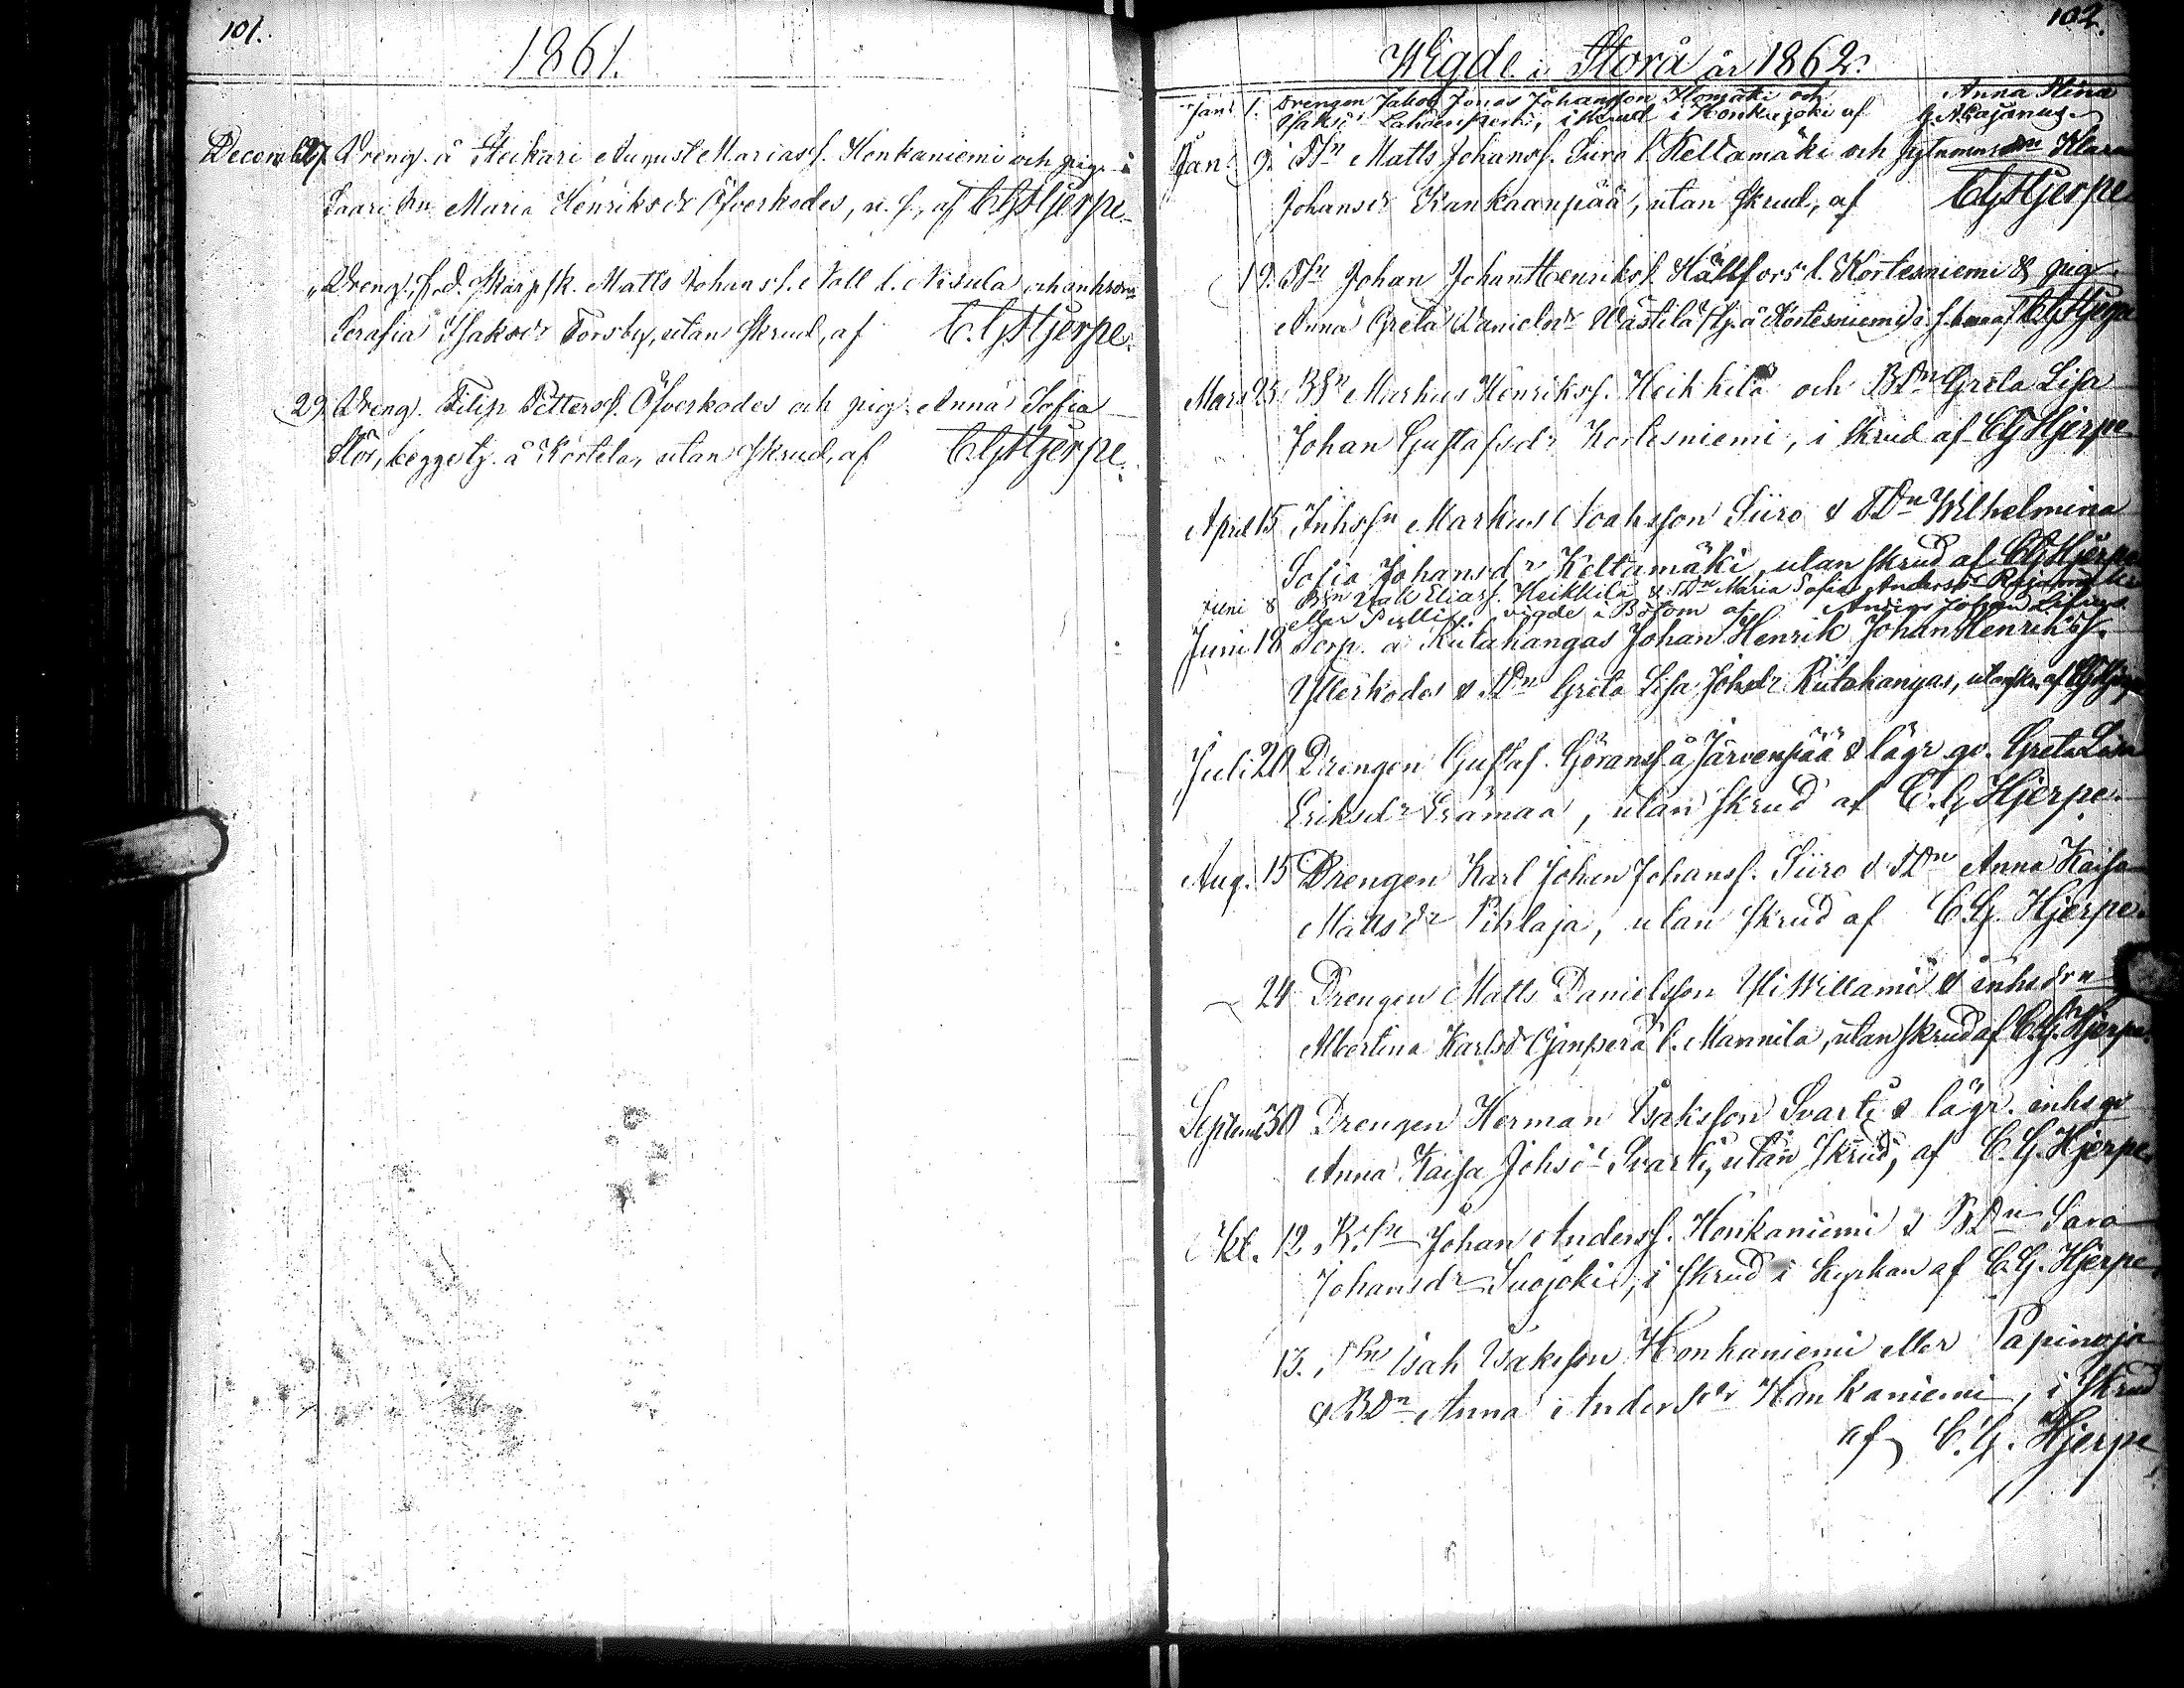 101.
1861.
Decemb. 27 Dreng. å Steikari August Mariasf. Honkaniemi och pig. å
Saari Maria Henriksdr Öfverkodes, u. s., af CGHjerpe
" Dreng., f.d. Skarpsk. Matts Johansf. Noll l. Nisula och
Serafia Isaksdr Forsby, utan skrud, af C.GHjerpe.
29. Dreng. Filip Pettersf. Öfverkodes och pig. Anna Sofia
Stor, begge tj. å Kortela, utan skrud, af CGHjerpe.
102.
Wigde i Storå år 1862.
Jan. 1. Drengen Jakob Jonas Johansson och Anna Stina
Isaksdr Lahdenperä, i skrud i Honkajoki af Cajanus.
Jan. 9. Matts Johansf. Siiro l. Keltamäki och Klara
Johansdr Kankaanpää, utan skrud, af CGHjerpe
19. Johan JohanHenriksf. Hällfors l. Kortesniemi & pig.
Anna Greta Danielsdr Wästilä (tj. å Kortesniemi) af CGHjerpe
Mars 25 BSn Markus Henriksf. Heikkilä och BDn Greta Lisa
Johan Gustafsdr Kortesniemi, i skrud af CGHjerpe
April 15 Inhsn Markus Noaksson Siiro & TDn Wilhelmina
Sofia Johansdr Keltamäki, utan skrud af CGHjerpe
Juni 8 BSn Isak Eliasf. Heikkilä & TDn Maria Sofia Andersdr
eller vigde i Bötom af Anders Johan
Juni 18 Torp. å Riitakangas Johan Henrik JohanHenriksf.
Ytterkodes & TDn Greta Lisa Johsdr Riitakangas, utan skr. af CGHjerpe
Juli 20 Drengen Gustaf Göransf. å Järvenpää & lägr. qv. Greta Lisa
Eriksdr Erämaa, utan skrud af C.G Hjerpe.
Aug. 15 Drengen Karl Johan Johansf. Siiro & TDn Anna Kaisa
Mattsdr Pihlaja, utan skrud af C.G. Hjerpe.
24 Drengen Matts Danielsson YliWillamo & inhsdrn
Albertina Karlsdr Gjanperä l. Mannila, utan skrud af C.G. Hjerpe.
Septemb 30 Drengen Herman Isaksson Svarti & lägr. inhs qv
Anna Kaisa Johsdr Svarti, utan skrud, af C.G. Hjerpe.
Okt. 12 Johan Andersf. Honkaniemi & BDn Sara
Johansdr Suojoki, i skrud i kyrkan af C.G. Hjerpe.
13. Isak Isaksson Honkaniemi eller Papinoja
& BDn Anna Andersdr Honkaniemi, i skrud
af C.G. Hjerpe